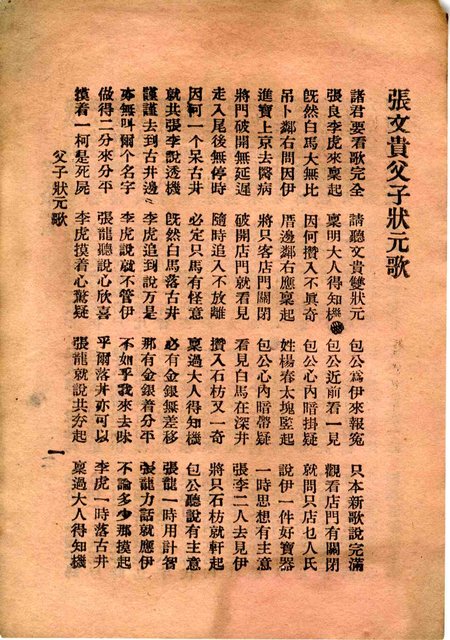 張文貴父子狀元歌
諸君要看歌完全 請聽文貴雙狀元 包公爲伊來報寃 只本新歌說完滿
張良李虎來稟起 稟明大人得知機 包公近前看一見 觀看店門有關閉
旣然白馬大無比 因何攢入不眞奇 包公心內暗掛疑 就問只店乜人氏
吊卜鄰右問因伊 厝邊鄰右應稟起 姓楊春太塊監起 說伊一件好寶器
進寶上京去醫病 將只客店門關閉 包公心內暗帶疑 一時思想有主意
將門破開無延遲 破開店門就看見 看見白馬在深井 張李二人去見伊
走入尾後無停時 隨時追入不放離 攢入石枋又一奇 將只石枋就軒起
因何一个呆古井 必定只馬有怪意 稟過大人得知機 包公聽說有主意
就共張李說透機 旣然白馬落古井 必有金銀無差移 張龍一時用計智
謹謹去到古井邊 李虎追到說方是 那有金銀着分平 張龍力話就應伊
亦無叫爾个名字 李虎說就不管伊 不如乎我來去味 不論多少那摸起
做得二分來分平 張龍聽說心欣喜 乎爾落井亦可以 李虎一時落古井
摸着一柯是死屍 李虎摸着心驚疑 張龍就說共夯起 稟過大人得知機
父子狀元歌
一